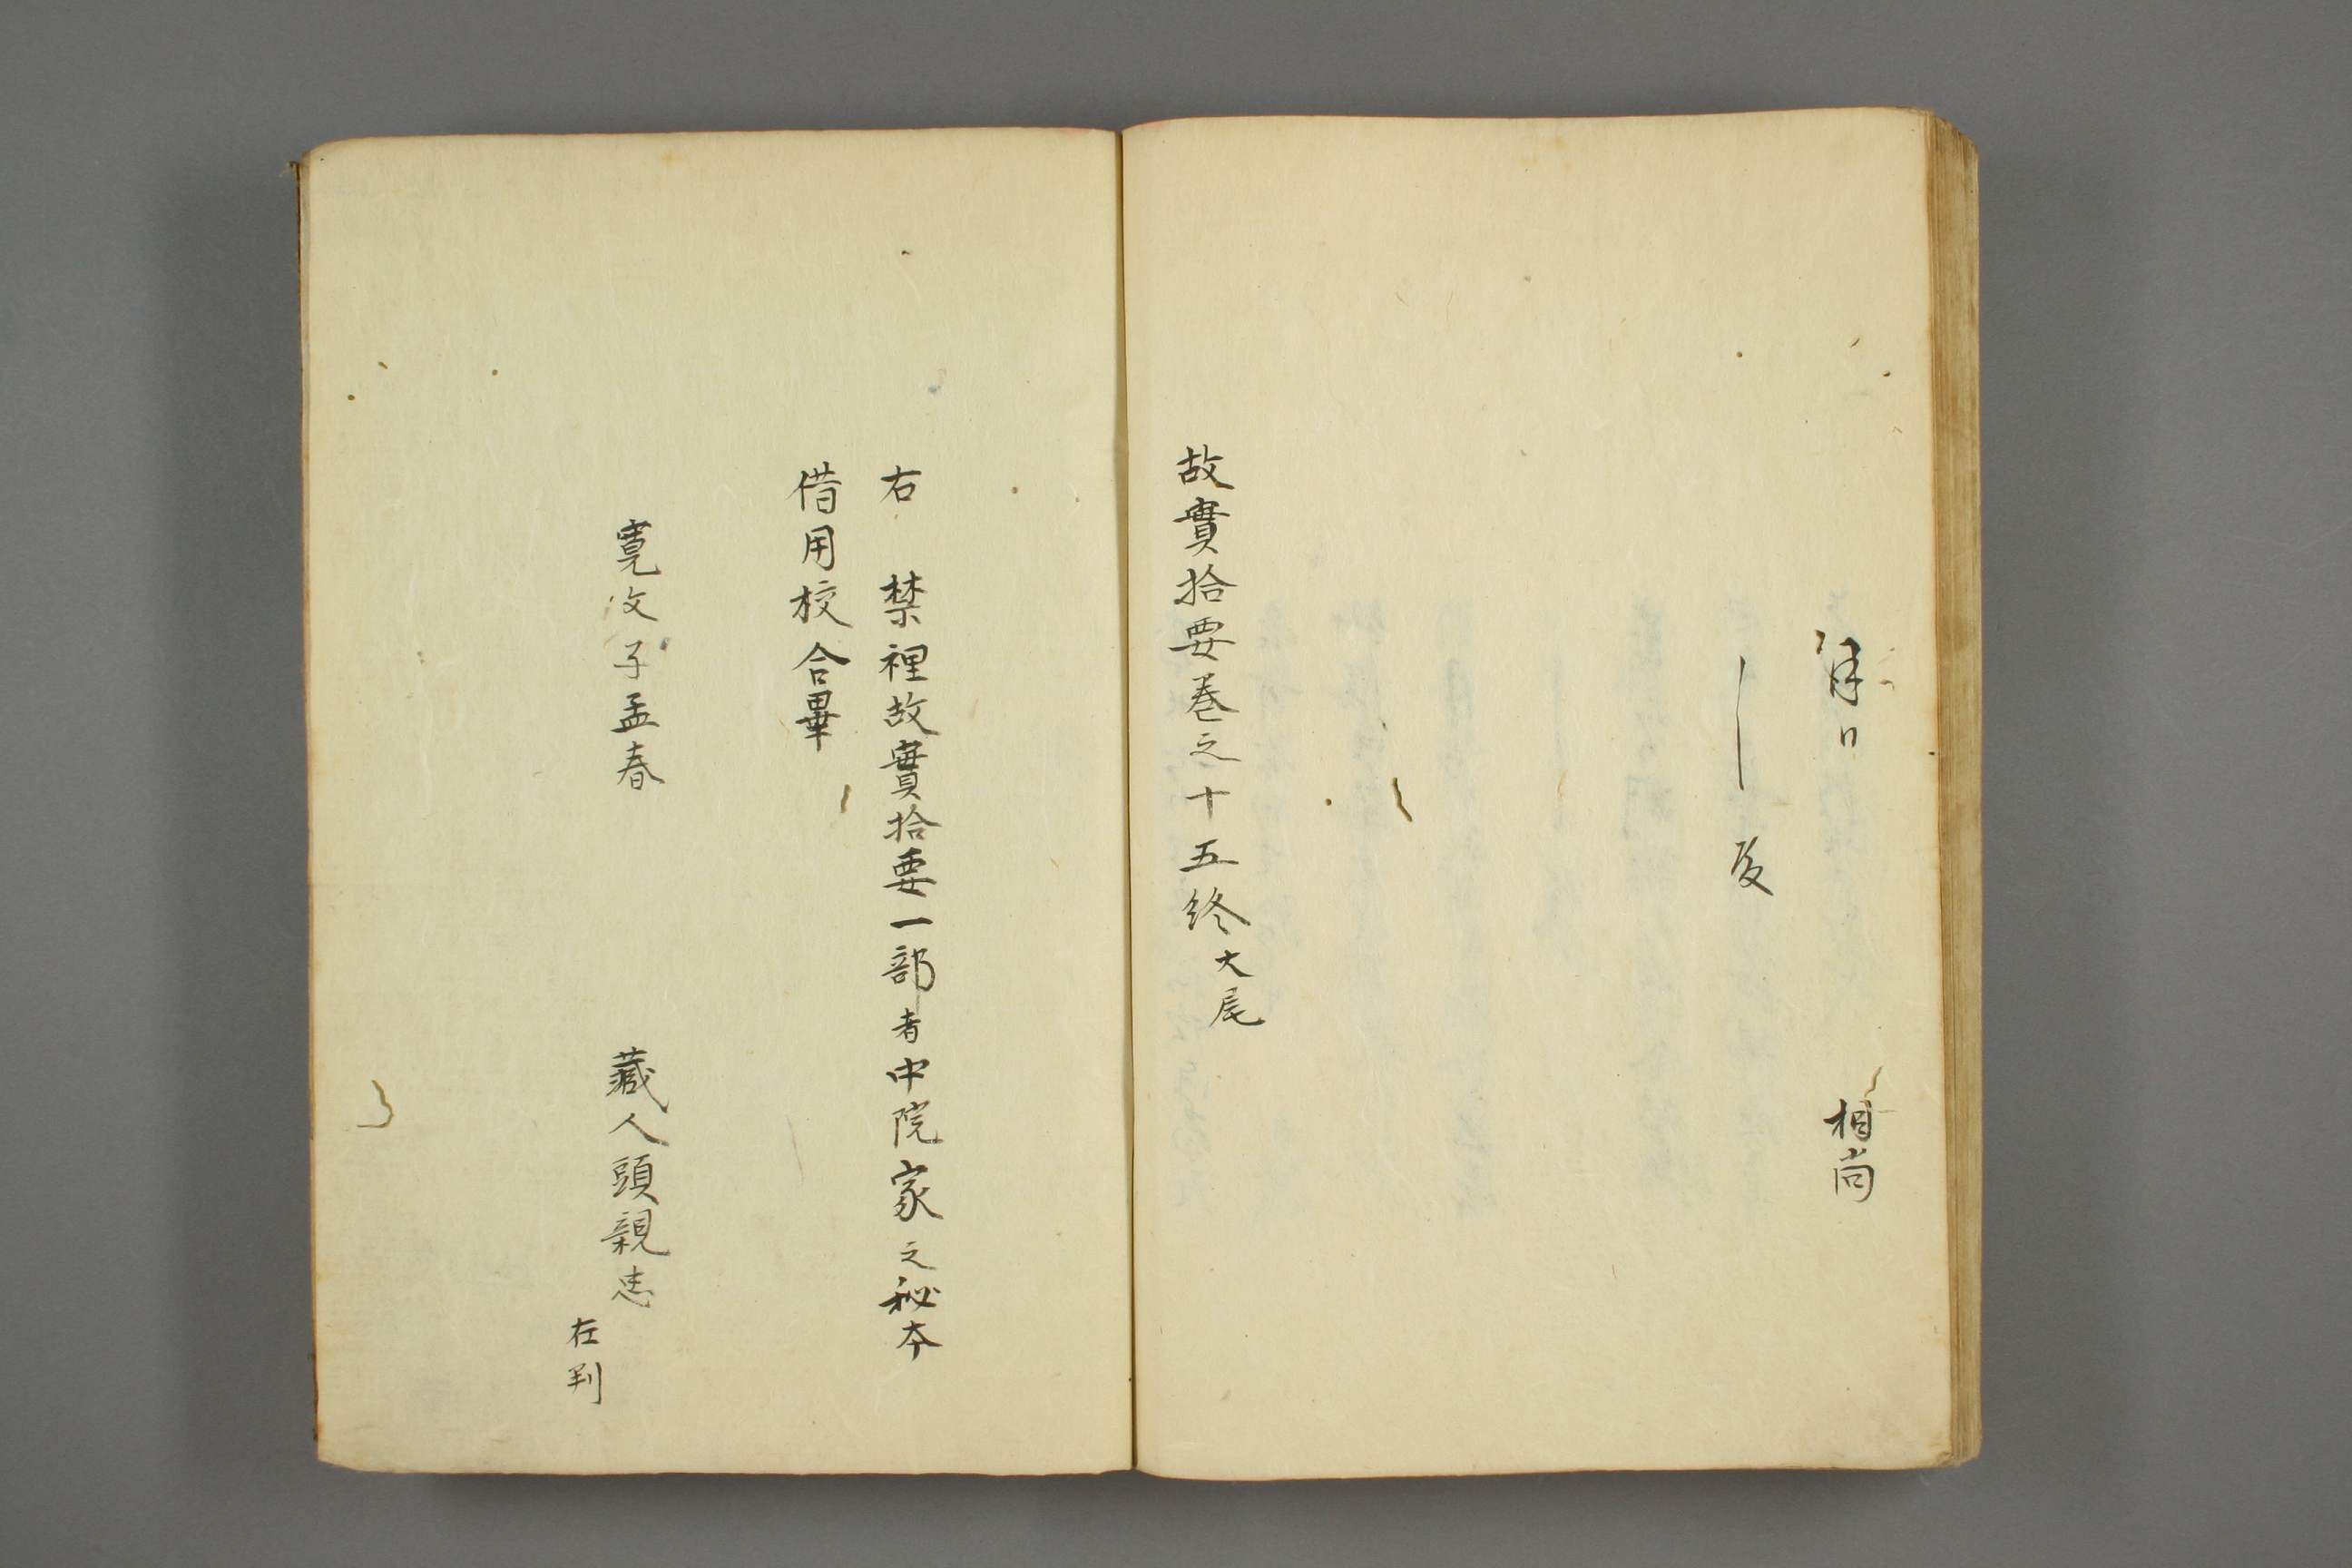 月日
相尚
殿
故實拾要巻之十五終大尾
右　禁裡故實拾要一部者中院家之秘本
借用校合畢
寛文子孟春
藏人頭親忠
在判